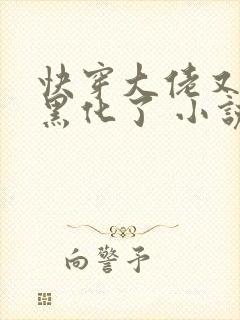 快穿大佬又
黑化了 小説
向警予